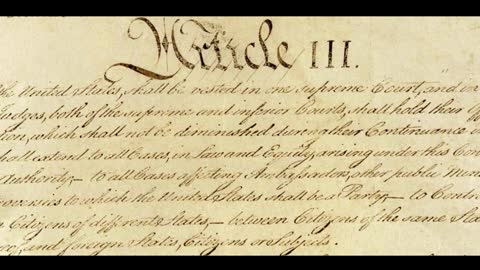 Article III.
the United States, shall be vested in one supreme Court, and in
Judges, both of the supreme and inferior Courts, shall hold their
tion, which shall not be diminished during their Continuance
shall extend to all Cases, in Law and Equity, arising under this Con
Authority;— to all Cases affecting Ambassadors, other public Min
roversies to which the United States shall be a Party;— to Contro
n Citizens of different States,— between Citizens of the same Sta
reof, and foreign States, Citizens or Subjects.